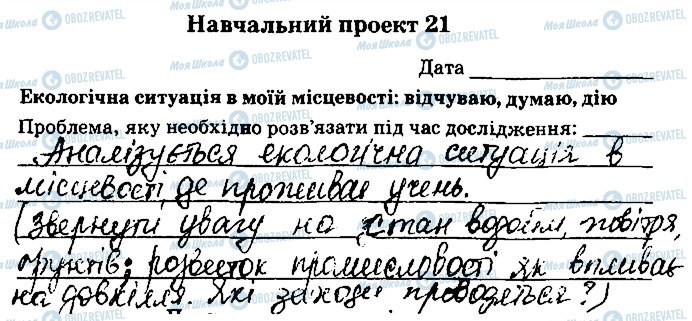 Навчальний проект 21
Дата
Екологічна ситуація в моїй місцевості: відчуваю, думаю, дію
Проблема, яку необхідно розв'язати під час дослідження:
Аналізується екологічна ситуація в
місцевості, де проживає учень.
(Звернути увагу на стан водойм, повітря,
ґрунтів; розвиток промисловості як впливає
на довкілля. Які заходи проводяться?)